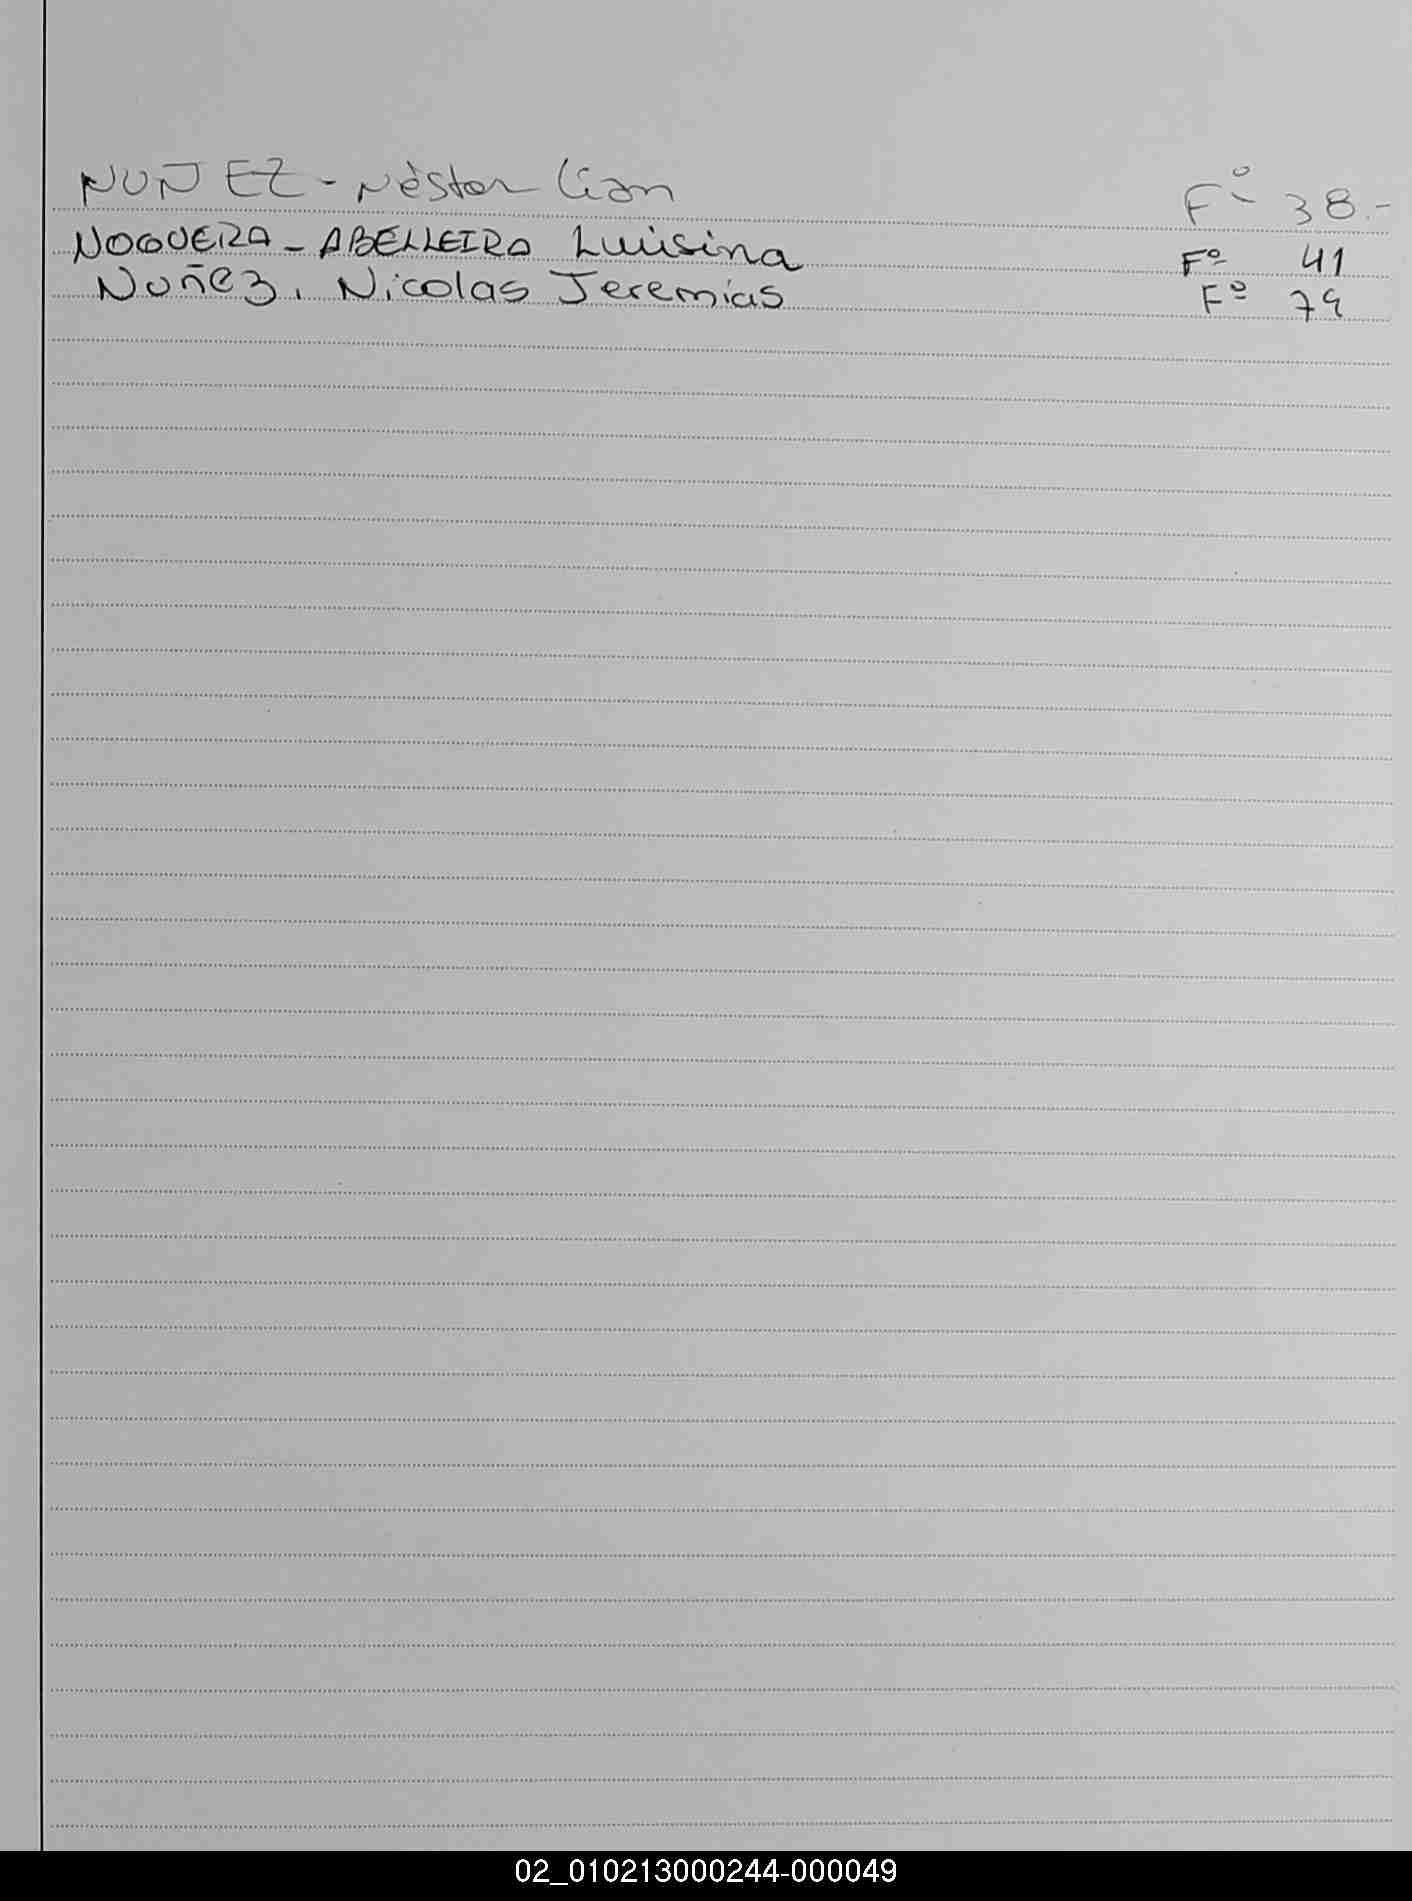 NUÑEZ - Néstor Lian Fº 38.-
NOGUEIRA - ABELLEIRA Luisina Fº 41
Nuñez, Nicolas Jeremias Fº 79
02_010213000244-000049